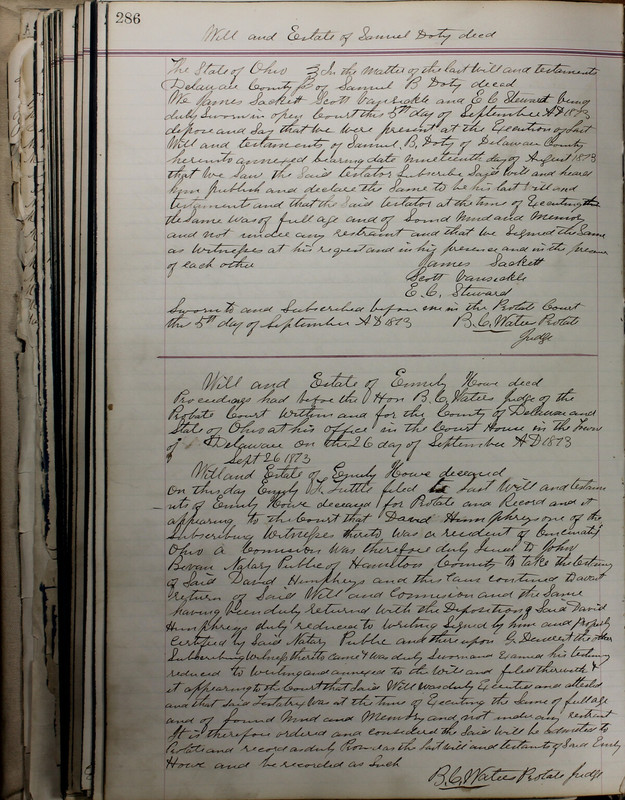 286
Will and Estate of Samuel Doty decd
The State of Ohio } In the Matter of the last Will and testaments
Delaware County ss of Samuel B Doty decd
We James Sackett Scott Vansickle and E C Steward being
duly Sworn in open Court this 5th day of September AD 1873
depose and Say that we were present at the Execution of Last
Will and testaments of Samuel B. Doty of Delaware County
hereunto annexed bearing date nineteenth day of August 1873
that We Saw the Said testator Subscribe Said Will and heard
him publish and declare the Same to be his last Will and
testament and that the Said testator at the time of Executing the
the Same was of full age and of Sound Mind and Memory
and not under any restraint and that we Signed the Same
as Witnesses at his request and in his presence and in the presence
of each other
James Sackett
Scott Vansickle
E. C. Steward
Sworn to and Subscribed before me in the Probate Court
the 5th day of September AD 1873 B. C. Waters Probate
Judge
Will and Estate of Emily Howe decd
Proceedings had before the Hon B. C. Waters Judge of the
Probate Court Within and for the County of Delaware and
State of Ohio at his office in the Court House in the Town
of Delaware on the 26 day of September AD 1873
Sept 26 1873
Will and Estate of Emily Howe deceased
On this day Emily Tuttle filed Last Will and testame
nts of Emily Howe deceased for Probate and Record and it
appearing to the Court that David Humphreys one of the
Subscribing Witnesses thereto was a resident of Cincinati
Ohio A Comission Was therefore duly Issued to John
Bevan Notary Public of Hamilton County to take the testimony
of Said David Humphreys and this Caus continued
return of Said Will and Comission and the Same
having been duly returned With the Deposition of Said David
Humphreys duly reduced to Writing Signed by him and Properly
Certified by Said Notary Public and thereupon G. the other
Subscribing Witness thereto came & Was duly Sworn and Examed his testimony
reduced to Writing and annexed to the Will and filed therewith &
it appearing to the Court that Said Will Was duly Executed and attested
and that Said testatrix Was at the time of Executing the Same of full age
and of Sound Mind and Memory and not under any restraint
It is therefore ordered and considered the Said Will be admitted to
Probate and record as duly Proven as the last Will and testaments of Said Emily
Howe and be recorded as Such
B. C. Waters Probate Judge